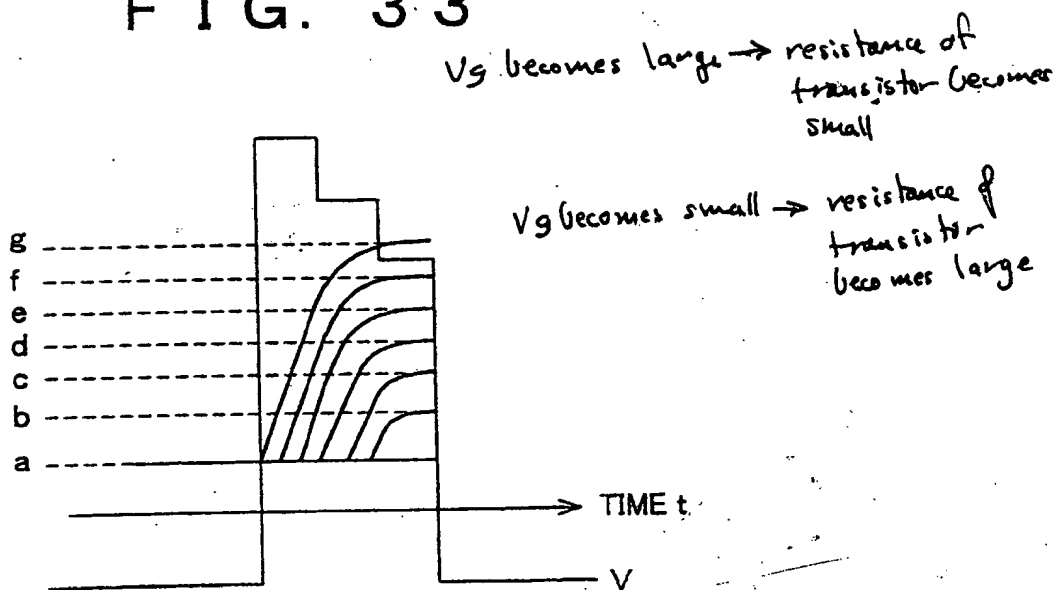 FIG. 33
Vg becomes large → resistance of
transistor becomes
small
Vg becomes small → resistance of
transistor
becomes large
g
f
e
d
c
b
a
TIME t
V